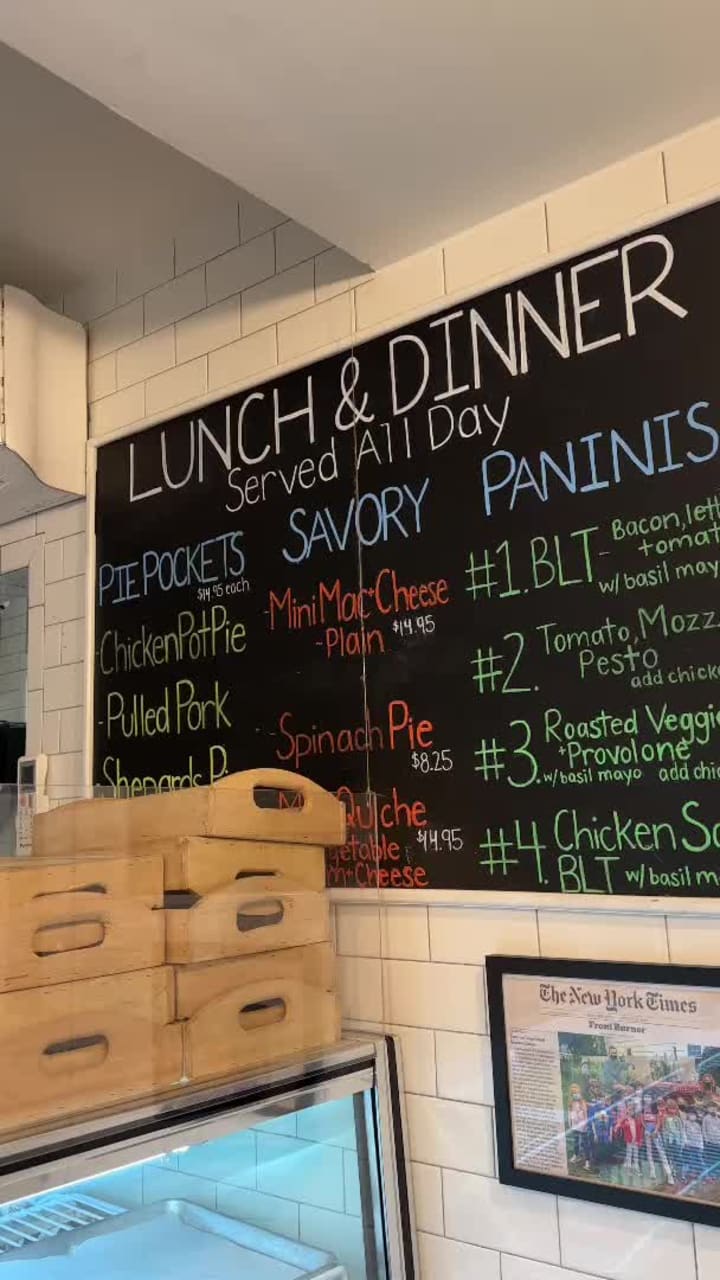 LUNCH & DINNER
Served All Day
PIE POCKETS
$14.95 each
-Chicken Pot Pie
-Pulled Pork
-Shepards
SAVORY
-Mini Mac+Cheese
-Plain $14.95
-Spinach Pie
$8.25
Quiche
$14.95
+Cheese
PANINIS
#1. BLT- Bacon,
w/ basil
#2. Tomato,
Pesto
add
#3. Roasted
+Provolone
w/ basil mayo add
#4. Chicken
BLT w/ basil
The New York Times
Front Burner